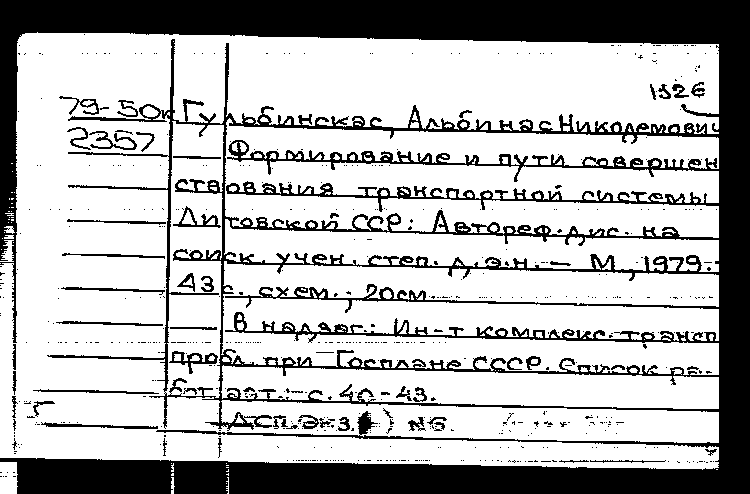 1326
79-50к Гульбинскас, Альбинас Никодемович
2357 Формирование и пути совершен
ствования транспортной системы
Литовской ССР: Автореф. дис. на
соиск. учен. степ. д.э.н. — М., 1979. -
43 с., схем.; 20см
В надзаг.: Ин-т комплекс. трансп
пробл. при Госплане ССCР. Список ра-
бот авт.: с. 40-43.
ДСП. Экз. ) №6.